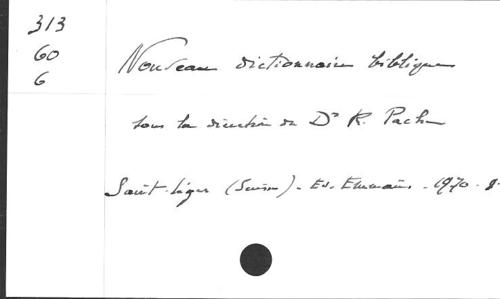 313
60
6
Nouveau dictionnaire biblique
sous la direction du Dr R. Pache
Saint-Léger (Suisse). Ed. Emmaüs. 1970. 8°